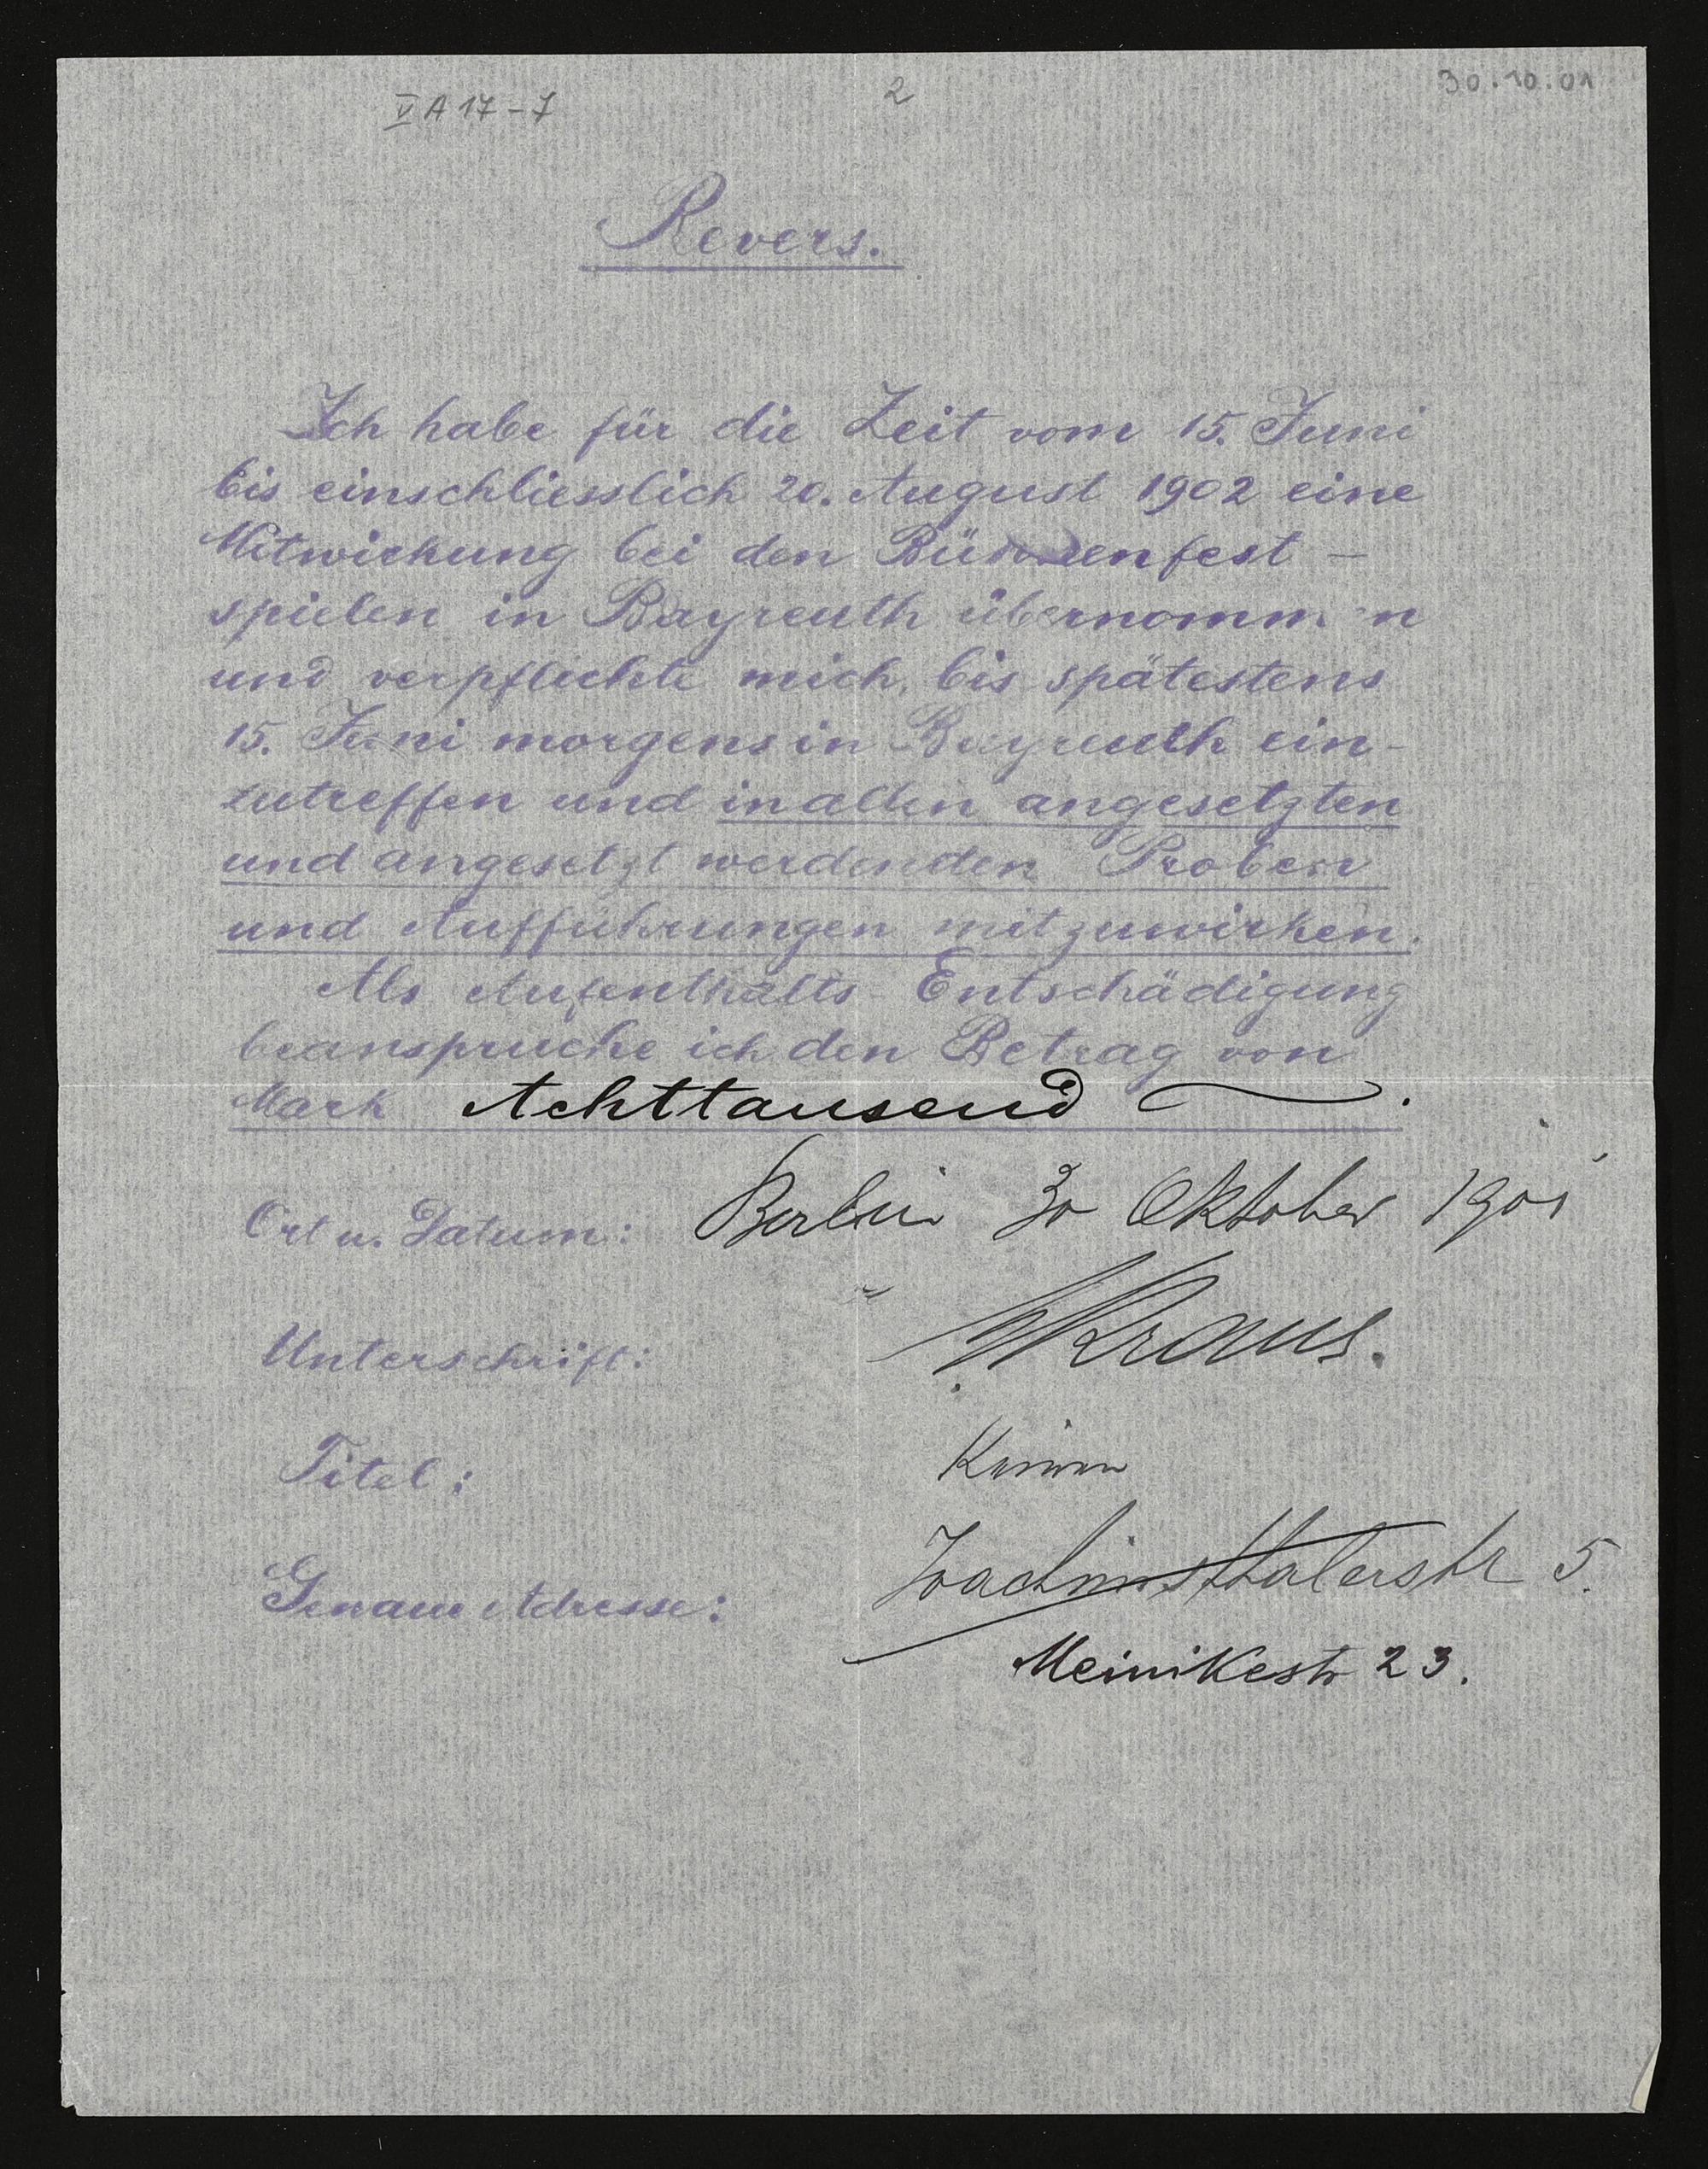 V A 17-7
2
30.10.01
Revers.
Ich habe für die Zeit vom 15. Juni
bis einschliesslich 20. August 1902 eine
Mitwirkung bei den Bühnenfest-
spielen in Bayreuth übernommen
und verpflichte mich, bis spätestens
15. Juni morgens in Bayreuth ein-
zutreffen und in allen angesetzten
und angesetzt werdenden Proben
und Aufführungen mitzuwirken.
Als Aufenthalts-Entschädigung
beanspruche ich den Betrag von
Mark Achttausend.
Ort u. Datum: Berlin 30 Oktober 1901
Unterschrift: Kraus.
Titel:
Genaue Adresse: Joachimsthalerstr 5.
Meinikestr 23.